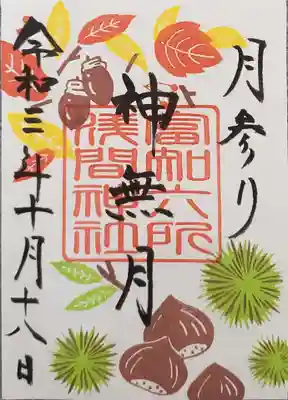 月参り
富知六所
淺間神社
神無月
令和三年十月十八日